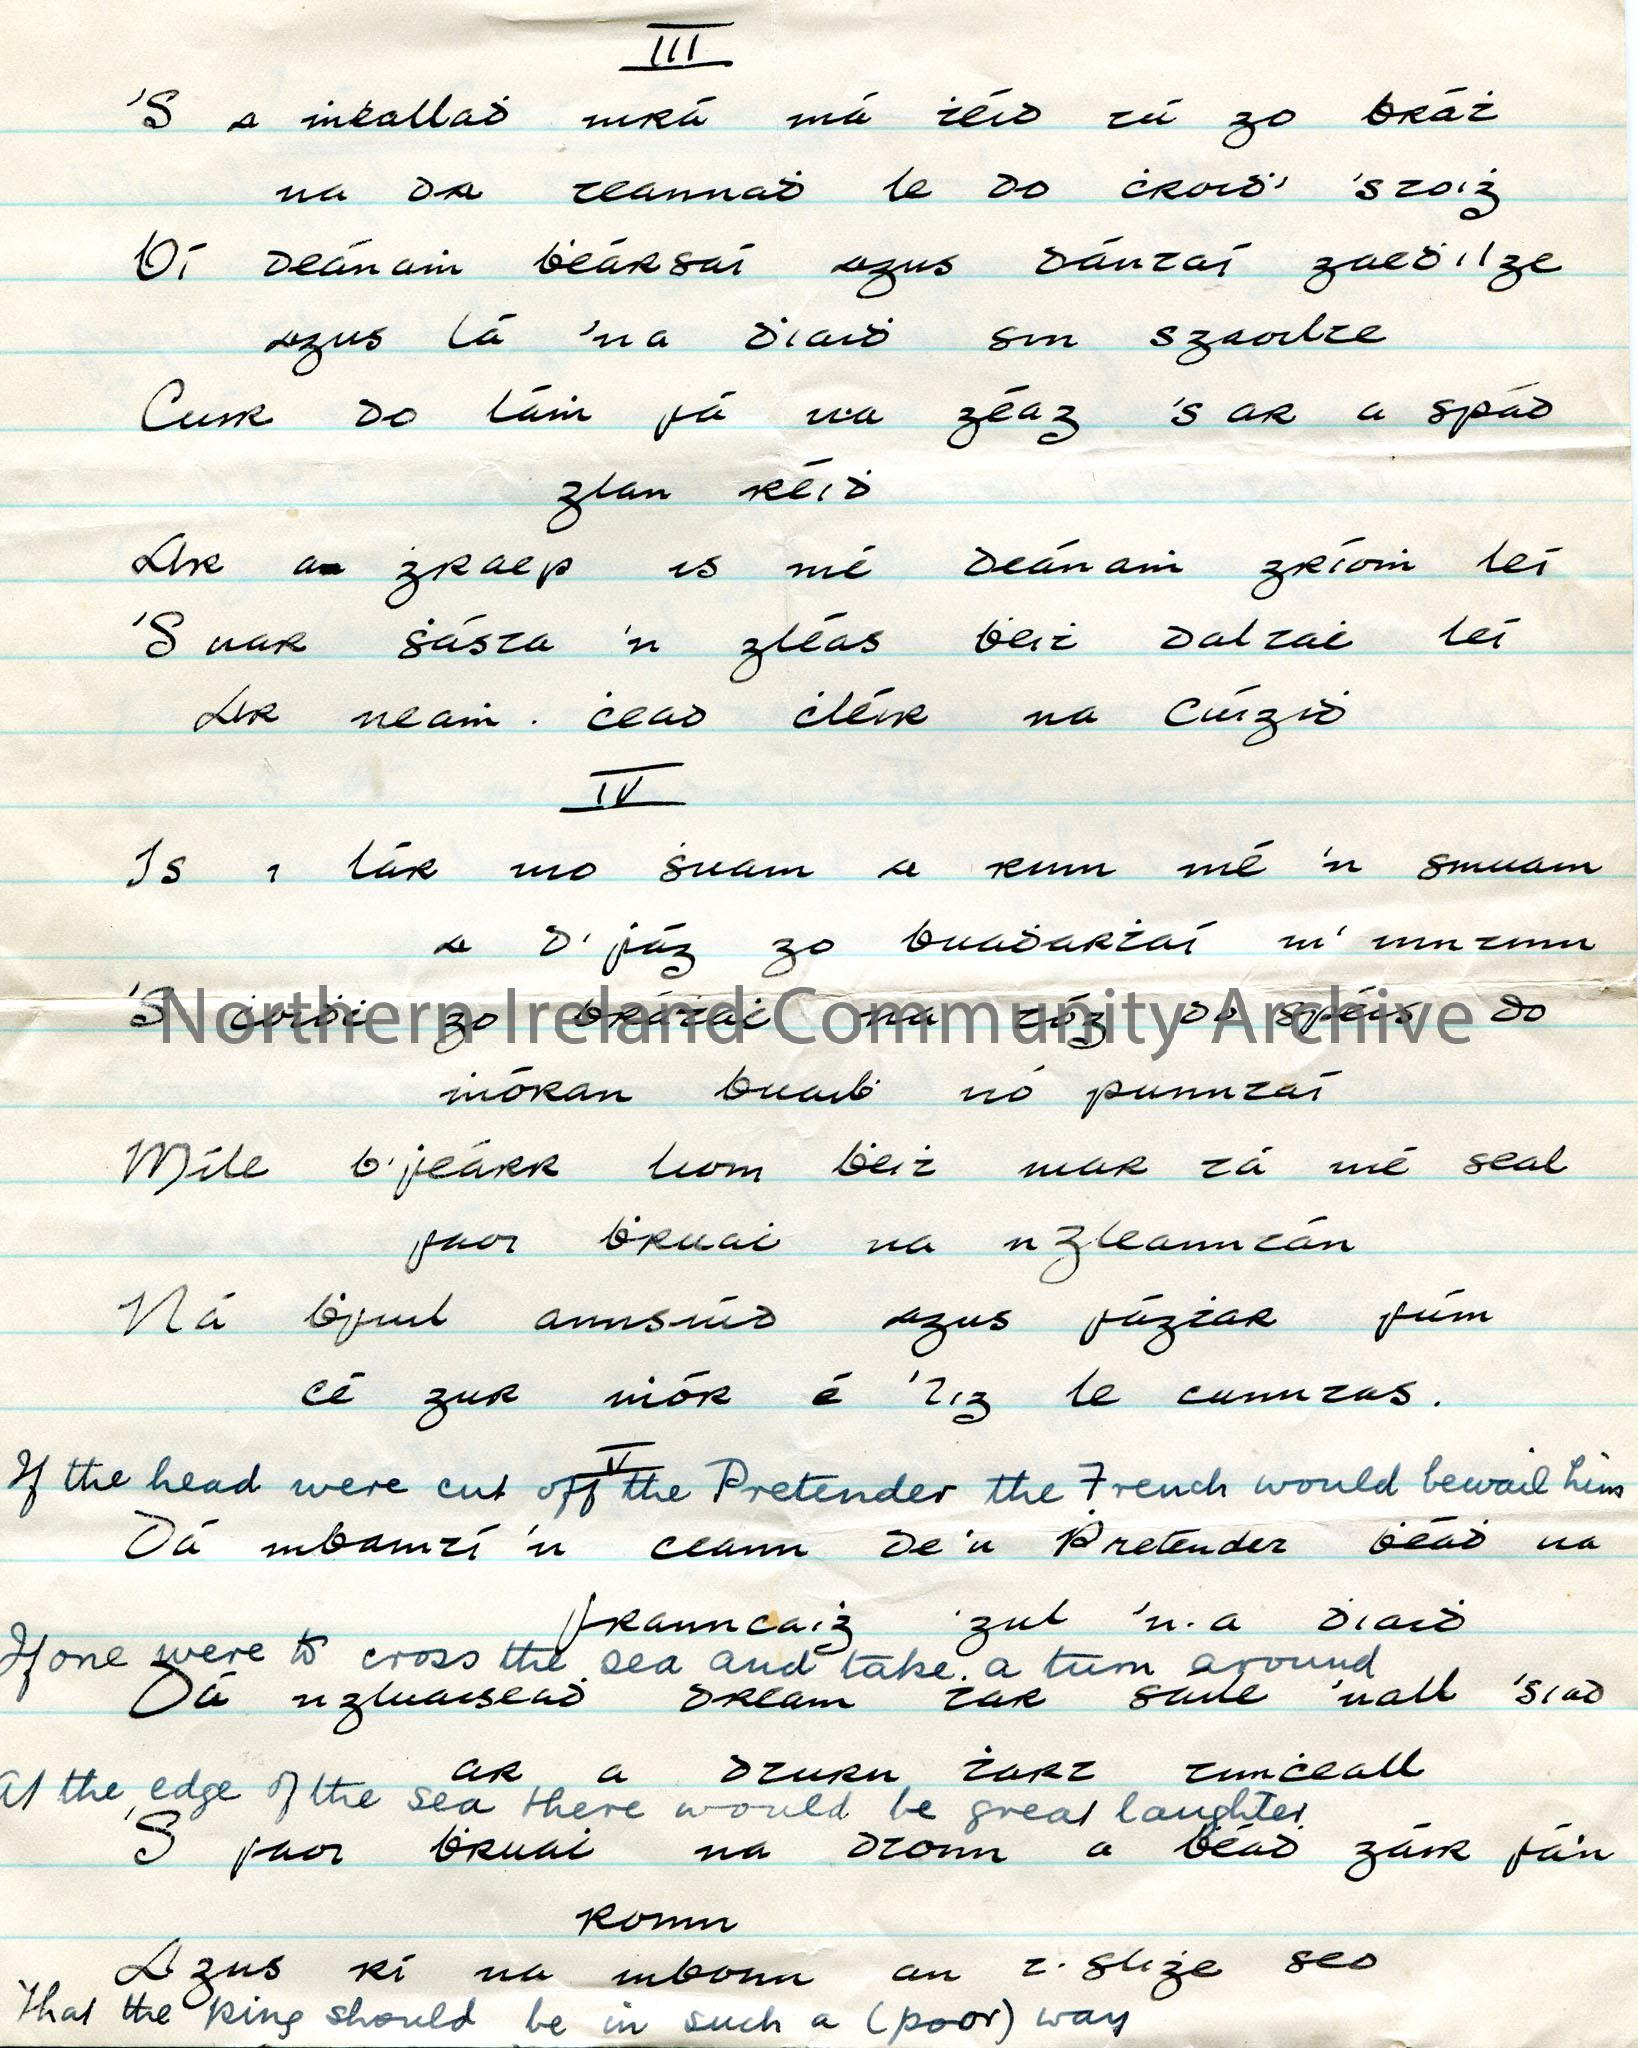 III
'S a ṁeallaḋ mrá má ṫéiḋ tú go bráṫ
na da teannaḋ le do ċroiḋ' 'stoiġ
Ḃí deánaṁ ḃéársaí agus dántaí gaeḋilge
agus lá 'na ḋiaiḋ sin sgaoilte
Cuir do láiṁ fá na géag 's ar a spád
glan réiḋ
Air a ġraep is mé deánaṁ gríoṁ léi
'S nar ṡásta 'n gléas ḃeiṫ daltaċ léi
Air neaṁ. ċead ċléir na Cúigiḋ
IV
Is i lár mo ṡuain a rinn mé 'n smuain
a d'fág go buaḋarṫaí m' inntinn
'S ċoiḋċ go bráṫaċ na tóg do spéis do
ṁórán buaiḃ nó punntaí
Míle b'feárr liom ḃeiṫ mar tá mé seal
faoi ḃruaċ na ngleanntán
Ná ḃfuil annsúd agus fágṫar fúm
cé gur ṁór é 'ṫig le cunntas.
V
If the head were cut off the Pretender the French would bewail him
Dá mbaintí 'n ceann de'n Pretender ḃéaḋ na
frainncaiġ 'gul 'n-a ḋiaiḋ
If one were to cross the sea and take a turn around
Dá ngluaiseaḋ dream ṫar sáile 'nall 'siad
ar a dturn ṫart timċeall
At the edge of the sea there would be great laughter
'S faoi ḃruaċ na dtonn a ḃéaḋ gáir fá'n
roinn
Agus rí na mbonn an t-sliġe seo
That the king should be in such a (poor) way
Northern Ireland Community Archive